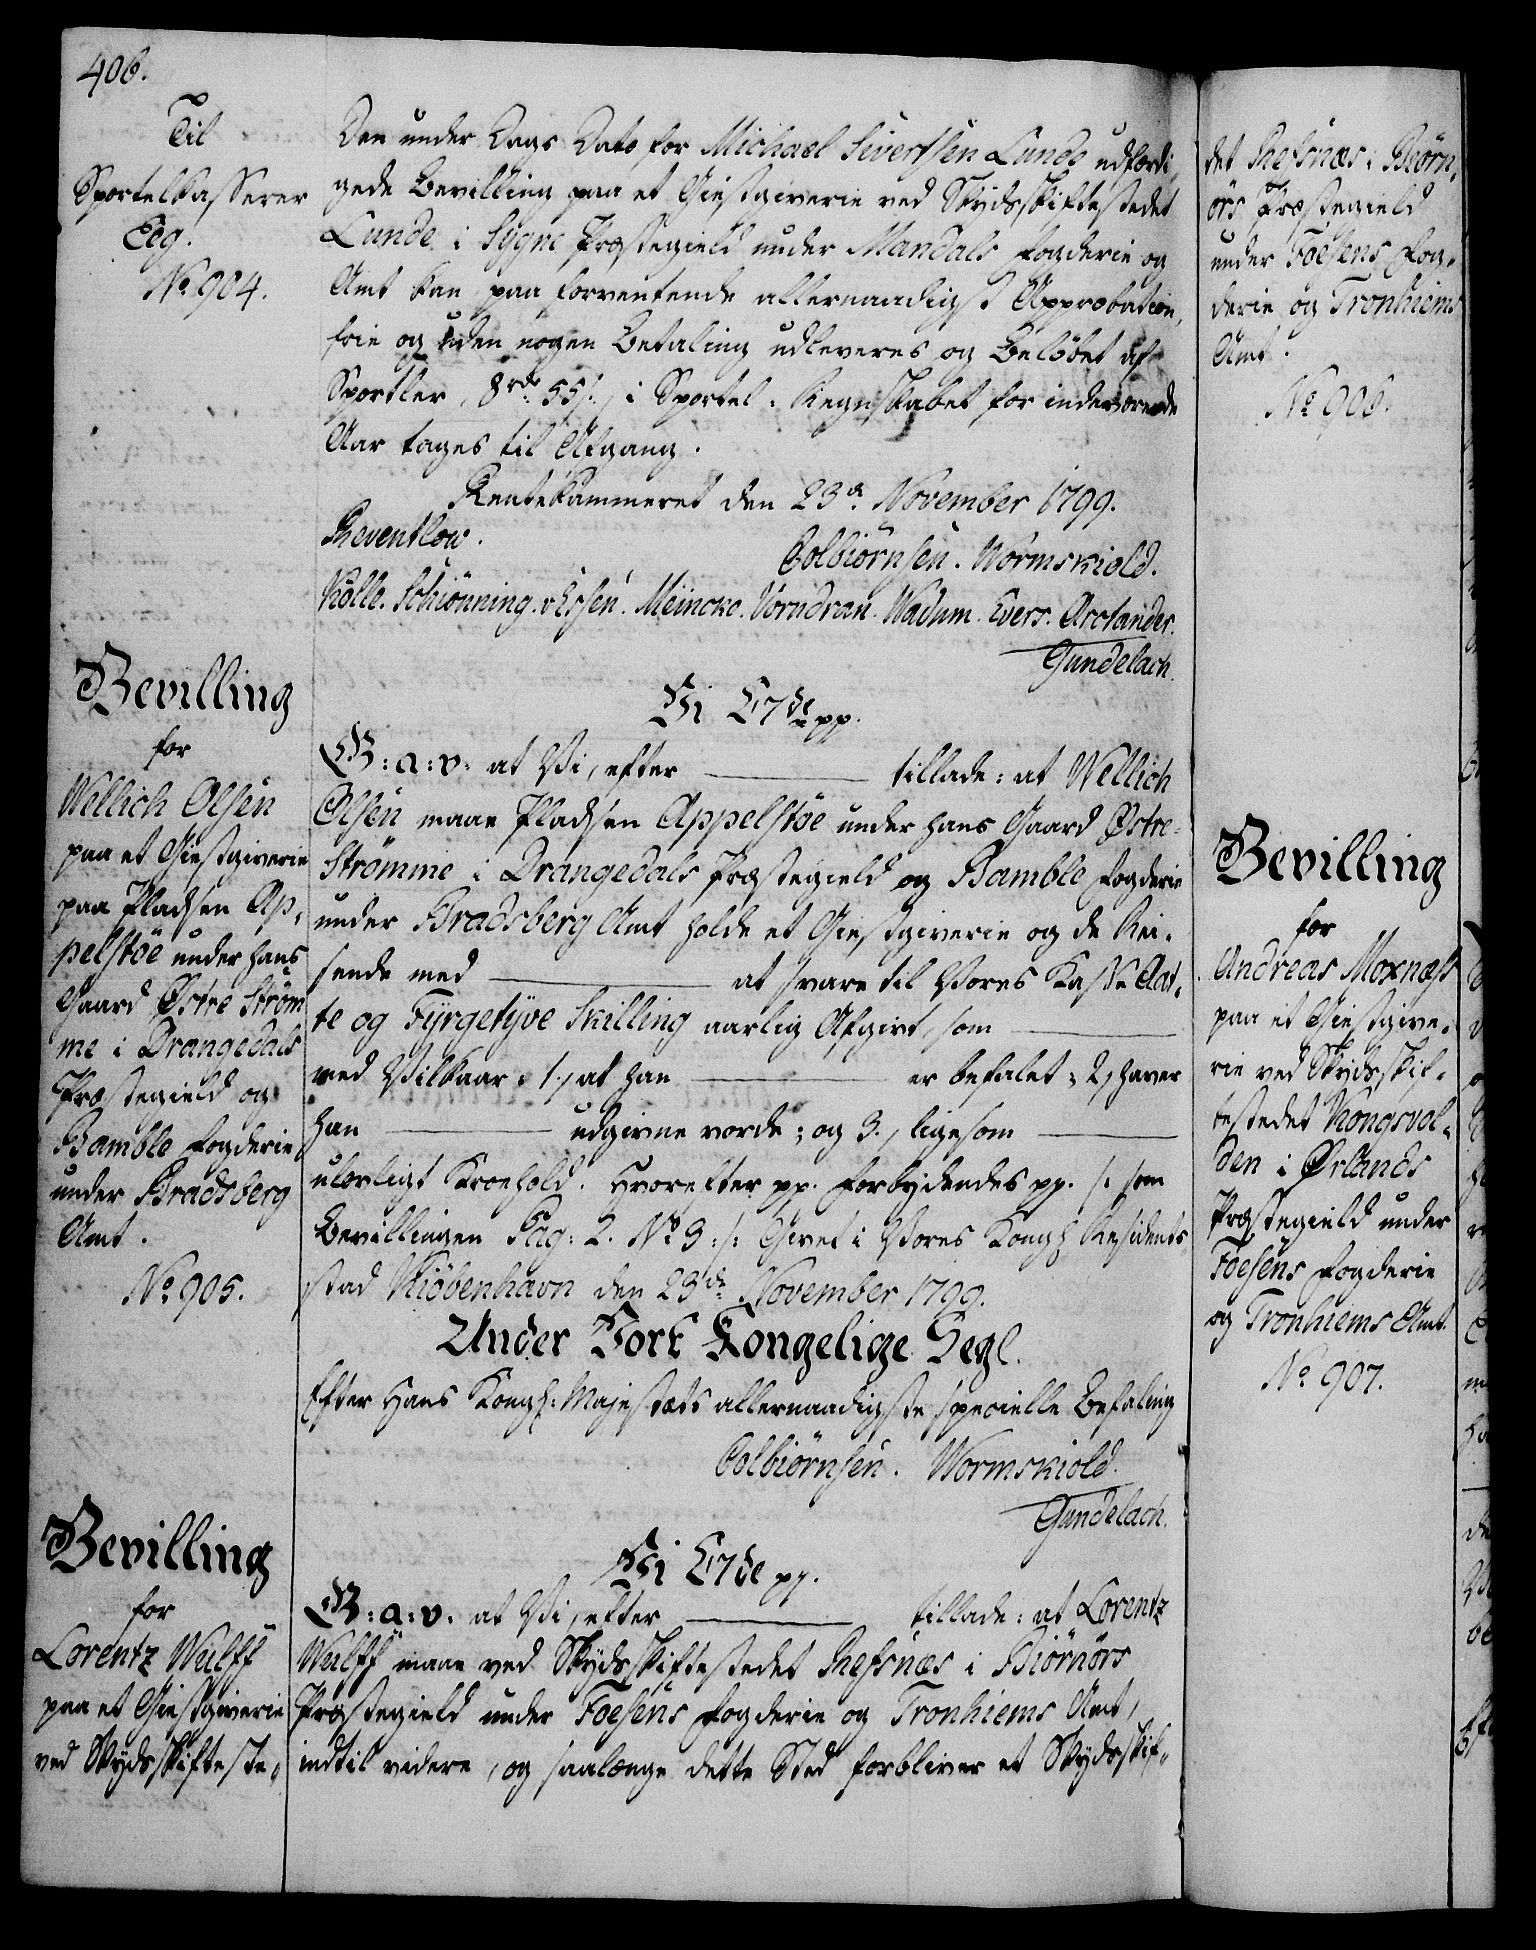 406.
Til
Sportelkasserer
Eeg.
No 904.
Den under Dags Dato for Michael Sivertsen Lunde udfærdi-
gede Bevilling paa et Giestgiverie ved Skydsskiftestedet
Lunde i Sygne Præstegield under Mandals Fogderie og
Amt kan paa forventende allernaadigst Approbation,
frie og uden nogen Betaling udleveres og Beløbet af
Sportler, 8rd. 55s., i Sportel-Regnskabet for indeværende
Aar tages til Afgang.
Rentekammeret den 23d November 1799.
Reventlow.
Colbiørnsen. Wormskiold.
Kölle. Schiønning. v Essen. Meincke. Vorndran. Wadum. Evers. Arctander.
Gundelach.
Bevilling
for
Wellich Olsen
paa et Giestgiverie
paa Pladsen Ap-
pelstöe under hans
Gaard Østre Ström
me i Drangedals
Præstegield og
Bamble Fogderie
under Bradsberg
Amt.
No 905.
Vi C7de pp.
G: a: v: at Vi, efter ——— tillade: at Wellich
Olsen maae Pladsen Appelstöe under hans Gaard Østre-
Strömme i Drangedals Præstegield og Bamble Fogderie
under Bradsberg Amt holde et Giestgiverie og de Rei-
sende med ——— at svare til Vores Kasse Aat-
te og Fyrgetyve Skilling aarlig Afgivt, som ———
med Vilkaar: 1., at han ——— er befalet; 2, haver
han ——— udgivne vorde; og 3., ligesom ———
ulovligt Kroehold. Hvorefter pp. Forbydendes pp. /: som
Bevillingen Pag: 2. No 3 :/: Givet i Vores Kongl. Residents
stad Kiøbenhavn den 23de November 1799.
Under Vort Kongelige Segl.
Efter Hans Kongl: Majestæts allernaadigste specielle Befaling
Colbiørnsen. Wormskiold.
Gundelach.
Bevilling
for
Lorentz Wulff
paa et Giestgiverie
ved Skydsskifteste-
Vi C7de pp.
G: a: v: at Vi, efter ——— tillade: at Lorentz
Wulff maae ved Skydsskiftestedet Refsnæs i Biørnörs
Præstegield under Foesens Fogderie og Tronhiems Amt,
indtil videre, og saalænge dette Sted forbliver et Skydsskif-
det Refsnæs i Biørn-
örs Præstegield
under Foesens Fog-
derie og Tronhiems
Amt.
No 906.
Bevilling
for
Andreas Moxnæss
paa et Giestgive-
rie ved Skydsskif-
testedet Kongsvol-
den i Ørlands
Præstegield under
Foesens Fogderie
og Tronhiems Amt.
No 907.